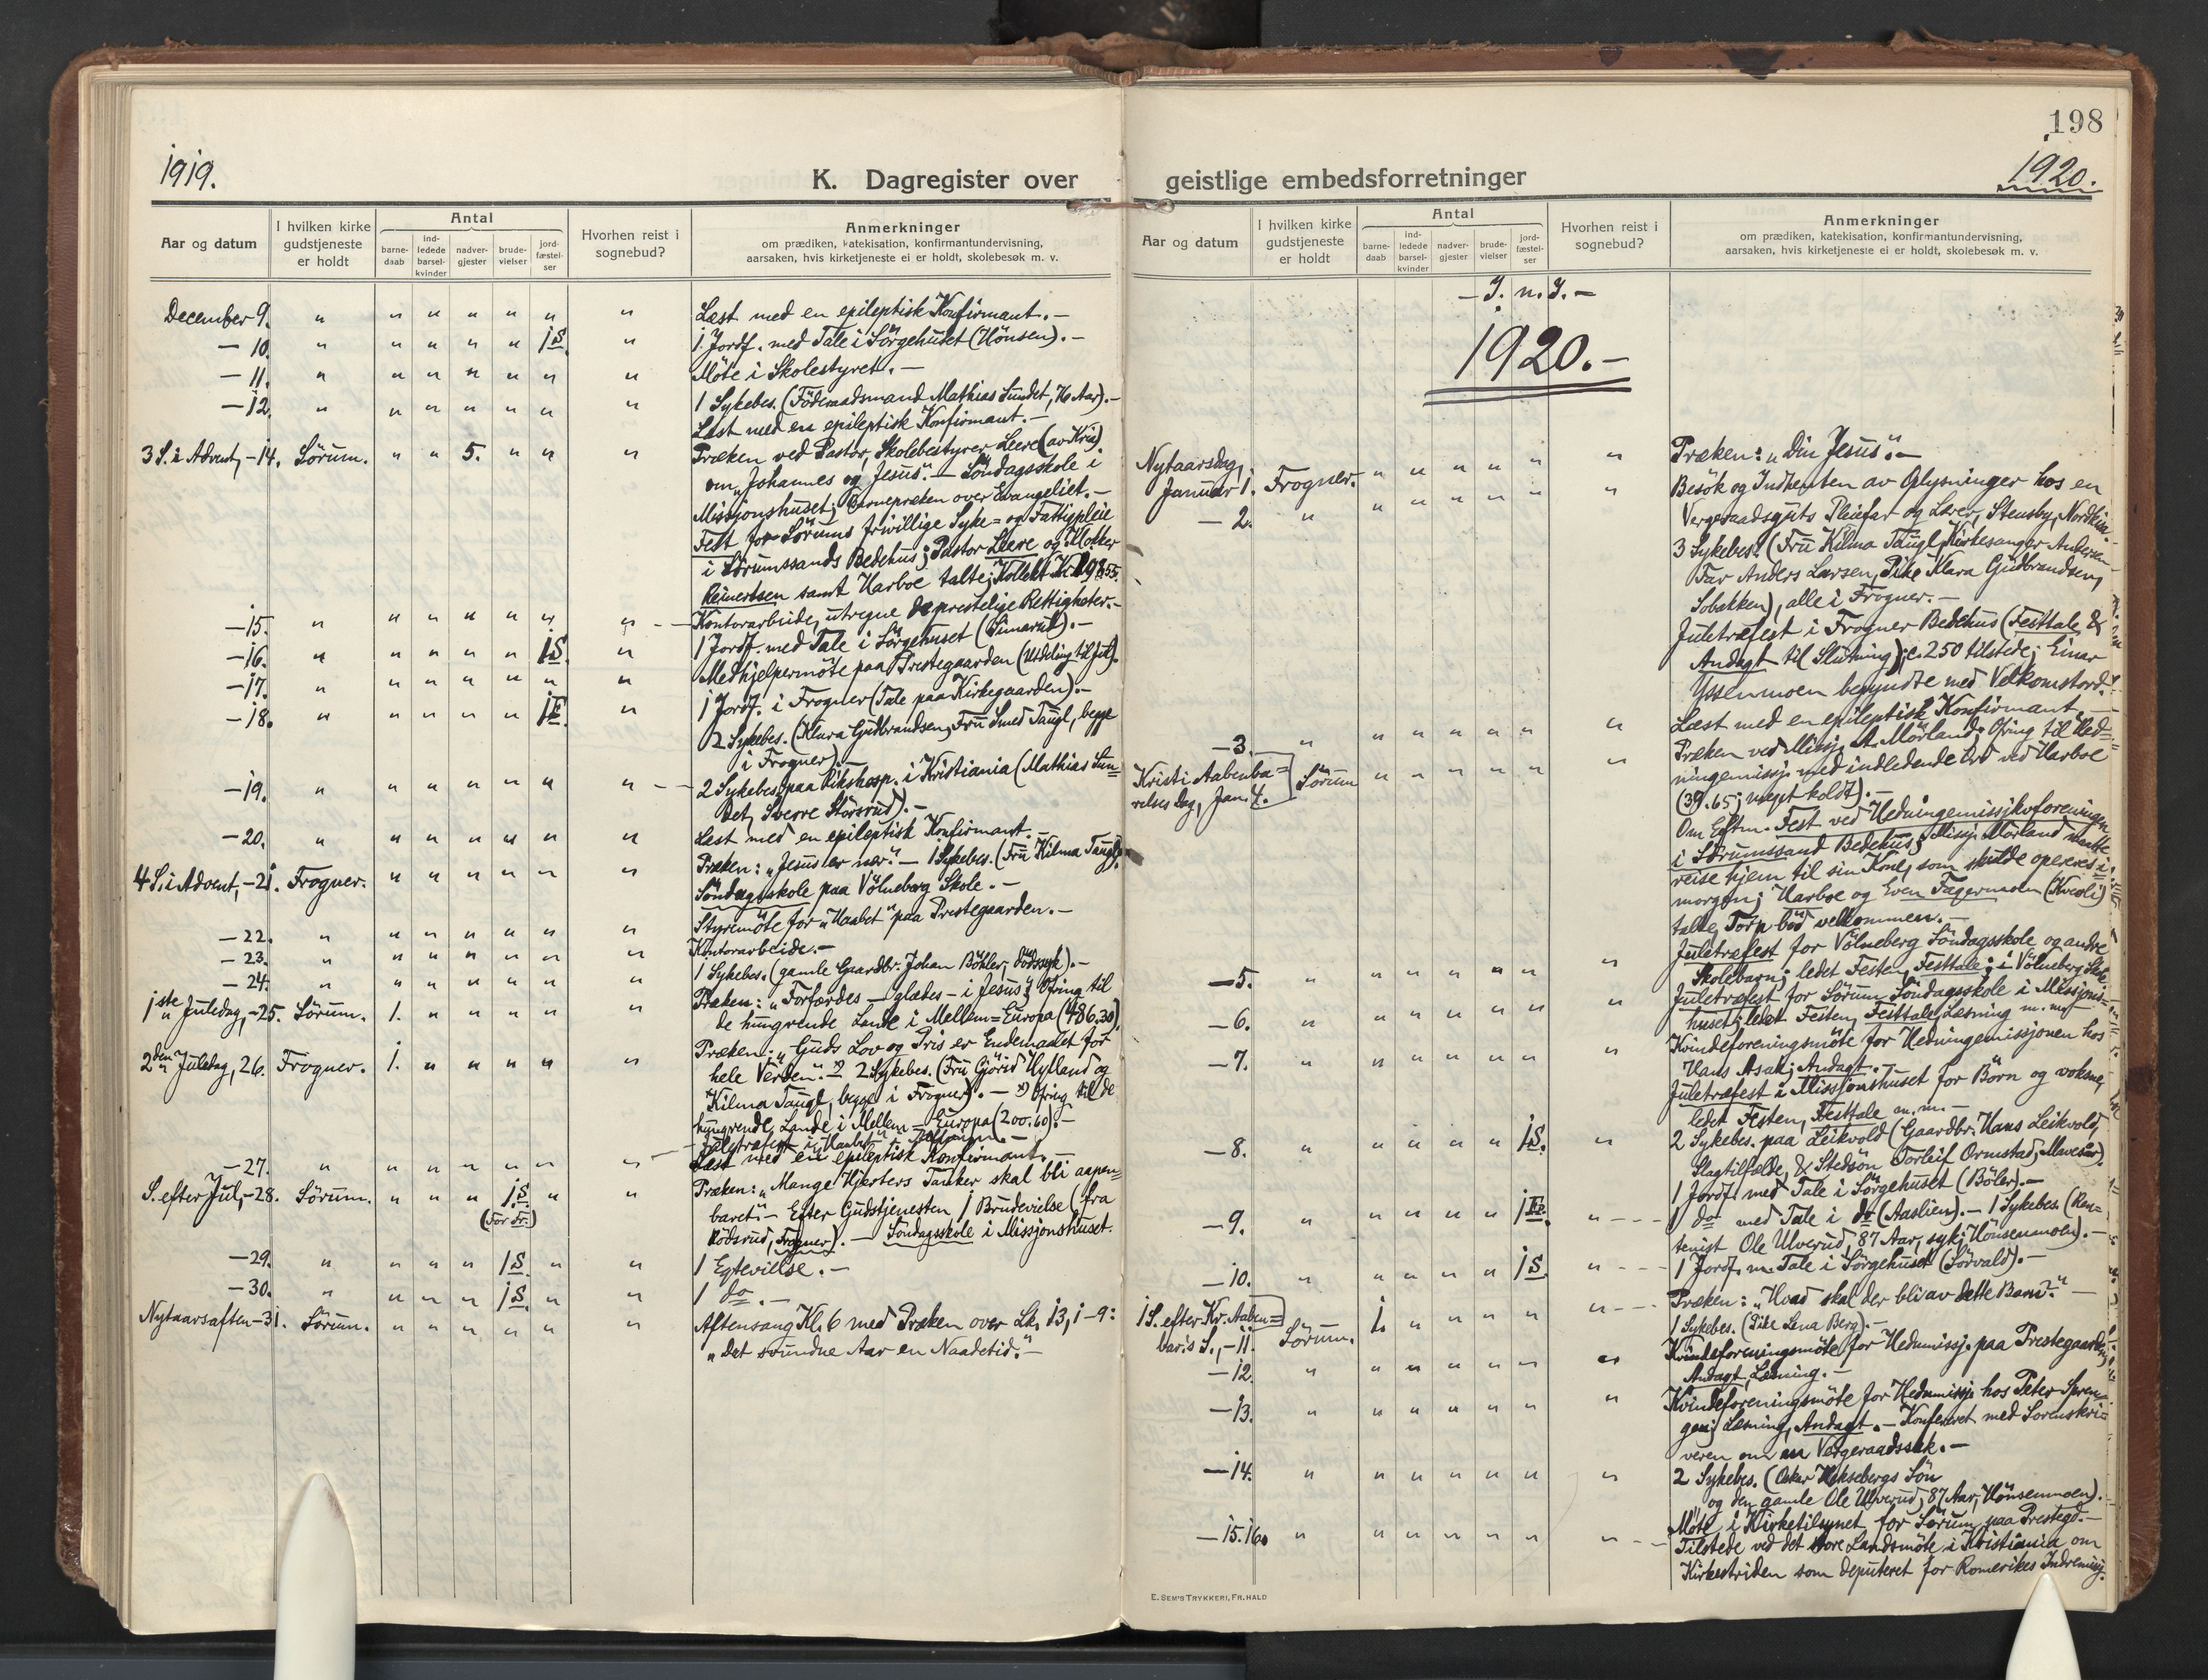 198
1919.
1920.
K. Dagregister over geistlige embedsforretninger
Aar og datum
I hvilken kirke gudstjeneste er holdt
Antal
barnedaab
indledede barselkvinder
nadvergjester
brudevielser
jordfæstelser
Hvorhen reist i sognebud?
Anmerkninger
om prædiken, katekisation, konfirmantundervisning,
aarsaken, hvis kirketjeneste ei er holdt, skolebesøk m. v.
December 9. " " " " " " " Læst med en epileptisk Konfirmant. —
— 10. " " " " " 1 S. " 1 Jordf. med Tale i Sörgehuset (Hönsen). —
— 11. " " " " " " " Möte i Skolestyret. —
— 12. " " " " " " " 1 Sykebes. (Föderaadsmand Mathias Sundet, 76 Aar). —
Læst med en epileptisk Konfirmant. —
3 S. i Advent, — 14. Sörum. " " 5. " " " Præken ved Pastor, Skolebestyrer Leere (av Kria).
om "Johannes og Jesus". — Söndagsskole i
Missjonshuset; Barnepræken over Evangeliet. —
Fest for Sörums frivillige Syke= og Fattigpleie
i Sörumssands Bedehus; Pastor Leere og Klokker
Reinertsen samt Harboe talte; Kollekt Kr. 198.55.
— 15. " " " " " " " — Kontorarbeide, utregne de prestelige Rettigheter. —
— 16. " " " " " 1 S. " 1 Jordf. med Tale i Sörgehuset (Simarud). —
— 17. " " " " " " " Medhjelpermöte paa Prestegaarden (Utdeling til Jul).
— 18. " " " " " 1 F. " 1 Jordf. i Frogner (Tale paa Kirkegaarden). —
2 Sykebes. (Klara Gudbrandsen, Fru Smed Taugl, begge
i Frogner). —
— 19. " " " " " " " — 2 Sykebes. paa Rikshosp. i Kristiania (Mathias Sun=
det, Sverre Störsrud). —
— 20. " " " " " " " Læst med en epileptisk Konfirmant. —
4 S. i Advent, — 21. Frogner. " " " " " " Præken: "Jesus er nær". — 1 Sykebes. (Fru Hilma Taugl).
Söndagsskole paa Völneberg Skole. —
— 22. " " " " " " " Styremöte for "Haabet" paa Prestegaarden. —
— 23. " " " " " " " Kontorarbeide. —
— 24. " " " " " " " 1 Sykebes. (gamle Gaardbr. Johan Böhler, dödssyk). —
1ste Juledag, — 25. Sörum. 1. " " " " " Præken: "Forfærdes — glædes — i Jesus"; Ofring til
de hungrende Lande i Mellem=Europa (486,30)
2den Juledag, 26. Frogner. 1. " " " " " Præken: "Guds Lov og Pris er Endemaalet for
hele Verden". *) 2 Sykebes. (Fru Gjörid Hytland og
Hilma Taugl, begge i Frogner). — *) Ofring til de
hungrende Lande i Mellem=Europa (200.60). —
— Juletræfest i "Haabet"
— 27. " " " " " " " Læst med en epileptisk Konfirmant. —
S. efter Jul, — 28. Sörum. " " " 1 S. (For Fr.) " " Præken: "Mange Hjerters Tanker skal bli aapen=
baret". — Efter Gudstjenesten 1 Brudevielse (fra
Rödsrud, Frogner). — Söndagsskole i Missjonshuset.
— 29. " " " " 1 S. " " 1 Egtevielse. —
— 30. " " " " 1 S. " " 1 do. —
Nytaarsaften — 31. Sörum. " " " " " " Aftensang Kl. 6 med Præken over Lk. 13, 1-9:
"Det svundne Aar en Naadetid". —
— I. n. J. —
1920. —
Nytaarsdag, Januar 1. Frogner. " " " " " " Præken: "Din Jesus". —
— 2. " " " " " " " Besök og Indhenten av Oplysninger hos en
Vergeraadsguts Pleiefar og Lærer, Stensby, Nordkisa. —
3 Sykebes. (Fru Hilma Taugl, Kirkesanger Andersen
Far Anders Larsen, Pike Klara Gudbrandsen,
Sobakken), alle i Frogner. —
Juletræfest i Frogner Bedehus (Festtale &
Andagt til Slutning); c. 250 tilstede; Einar
Yssenmoen begyndte med Velkomstord. —
— 3. " " " " " " " Læst med en epileptisk Konfirmant. —
Kristi Aabenba=relses Dag, Jan. 4. Sörum " " " " " " Præken ved Missj. A. Mörland; Ofring til Hed=
ningemissj. med indledende Ord ved Harboe
(39.65; meget koldt). —
Om Eftm. Fest ved Hedningemissjksforeningen
i Sörumssand Bedehus; Missj. Mörland maatte
reise hjem til sin Kone, som skulde opereres i
morgen; Harboe og Even Fagermoen (Kveoli)
talte, Torp bød velkommen. —
— 5. " " " " " " " Juletræfest for Völneberg Söndagsskole og andre
Skolebarn; ledet Festen, Festtale; i Völneberg Skole.
— 6. " " " " " " " Juletræfest for Sörum Söndagsskole i Missjons=
huset; ledet Festen, Festtale, Læsning m. m. —
— 7. " " " " " " " Kvindeforeningsmöte for Hedningemissjonen hos
Hans Asak; Andagt. —
Juletræfest i Missjonshuset for Börn og voksne,
ledet Festen, Festtale m. m. —
— 8. " " " " " 1 S. " 2 Sykebes. paa Leikvold (Gaardbr. Hans Leikvold,
Slagtilfælde, & Stedsön Torleif Ormstad, Mavesaar).
1 Jordf. med Tale i Sörgehuset (Böler). —
— 9. " " " " " 1 Fr. " — 1 do. med Tale i do (Aaslien). — 1 Sykebes. (Ren=
tenist Ole Ulverud, 87 Aar, syk; Hönsenmoen). —
— 10. " " " " " 1 S. " — 1 Jordf. m. Tale i Sörgehuset (Sörvald). —
1 S. efter Kr. Aaben=bar.s S., — 11. Sörum. 1. " " " " " — Præken: "Hvad skal der bli av dette Barn?" —
1 Sykebes. (Pike Lena Berg). —
— 12. " " " " " " " Kvindeforeningsmöte for Hedmissj. paa Prestegaarden,
Andagt, Læsning. —
— 13. " " " " " " " Kvindeforeningsmöte for Hedmissj. hos Peter Spren=
gen; Læsning, Andagt. — Konfereret med Sorenskri=
veren om en Vergeraadssak. —
— 14. " " " " " " " 2 Sykebes. (Oskar Heksebergs Sön
og den gamle Ole Ulverud, 87 Aar, Hönsenmoen). —
Möte i Kirketilsynet for Sörum paa Prestegd. —
— 15. 16. " " " " " " " — Tilstede ved det store Landsmöte i Kristiania om
Kirkestriden som deputeret for Romerikes Indremissj.
E. SEM'S TRYKKERI, FR.HALD